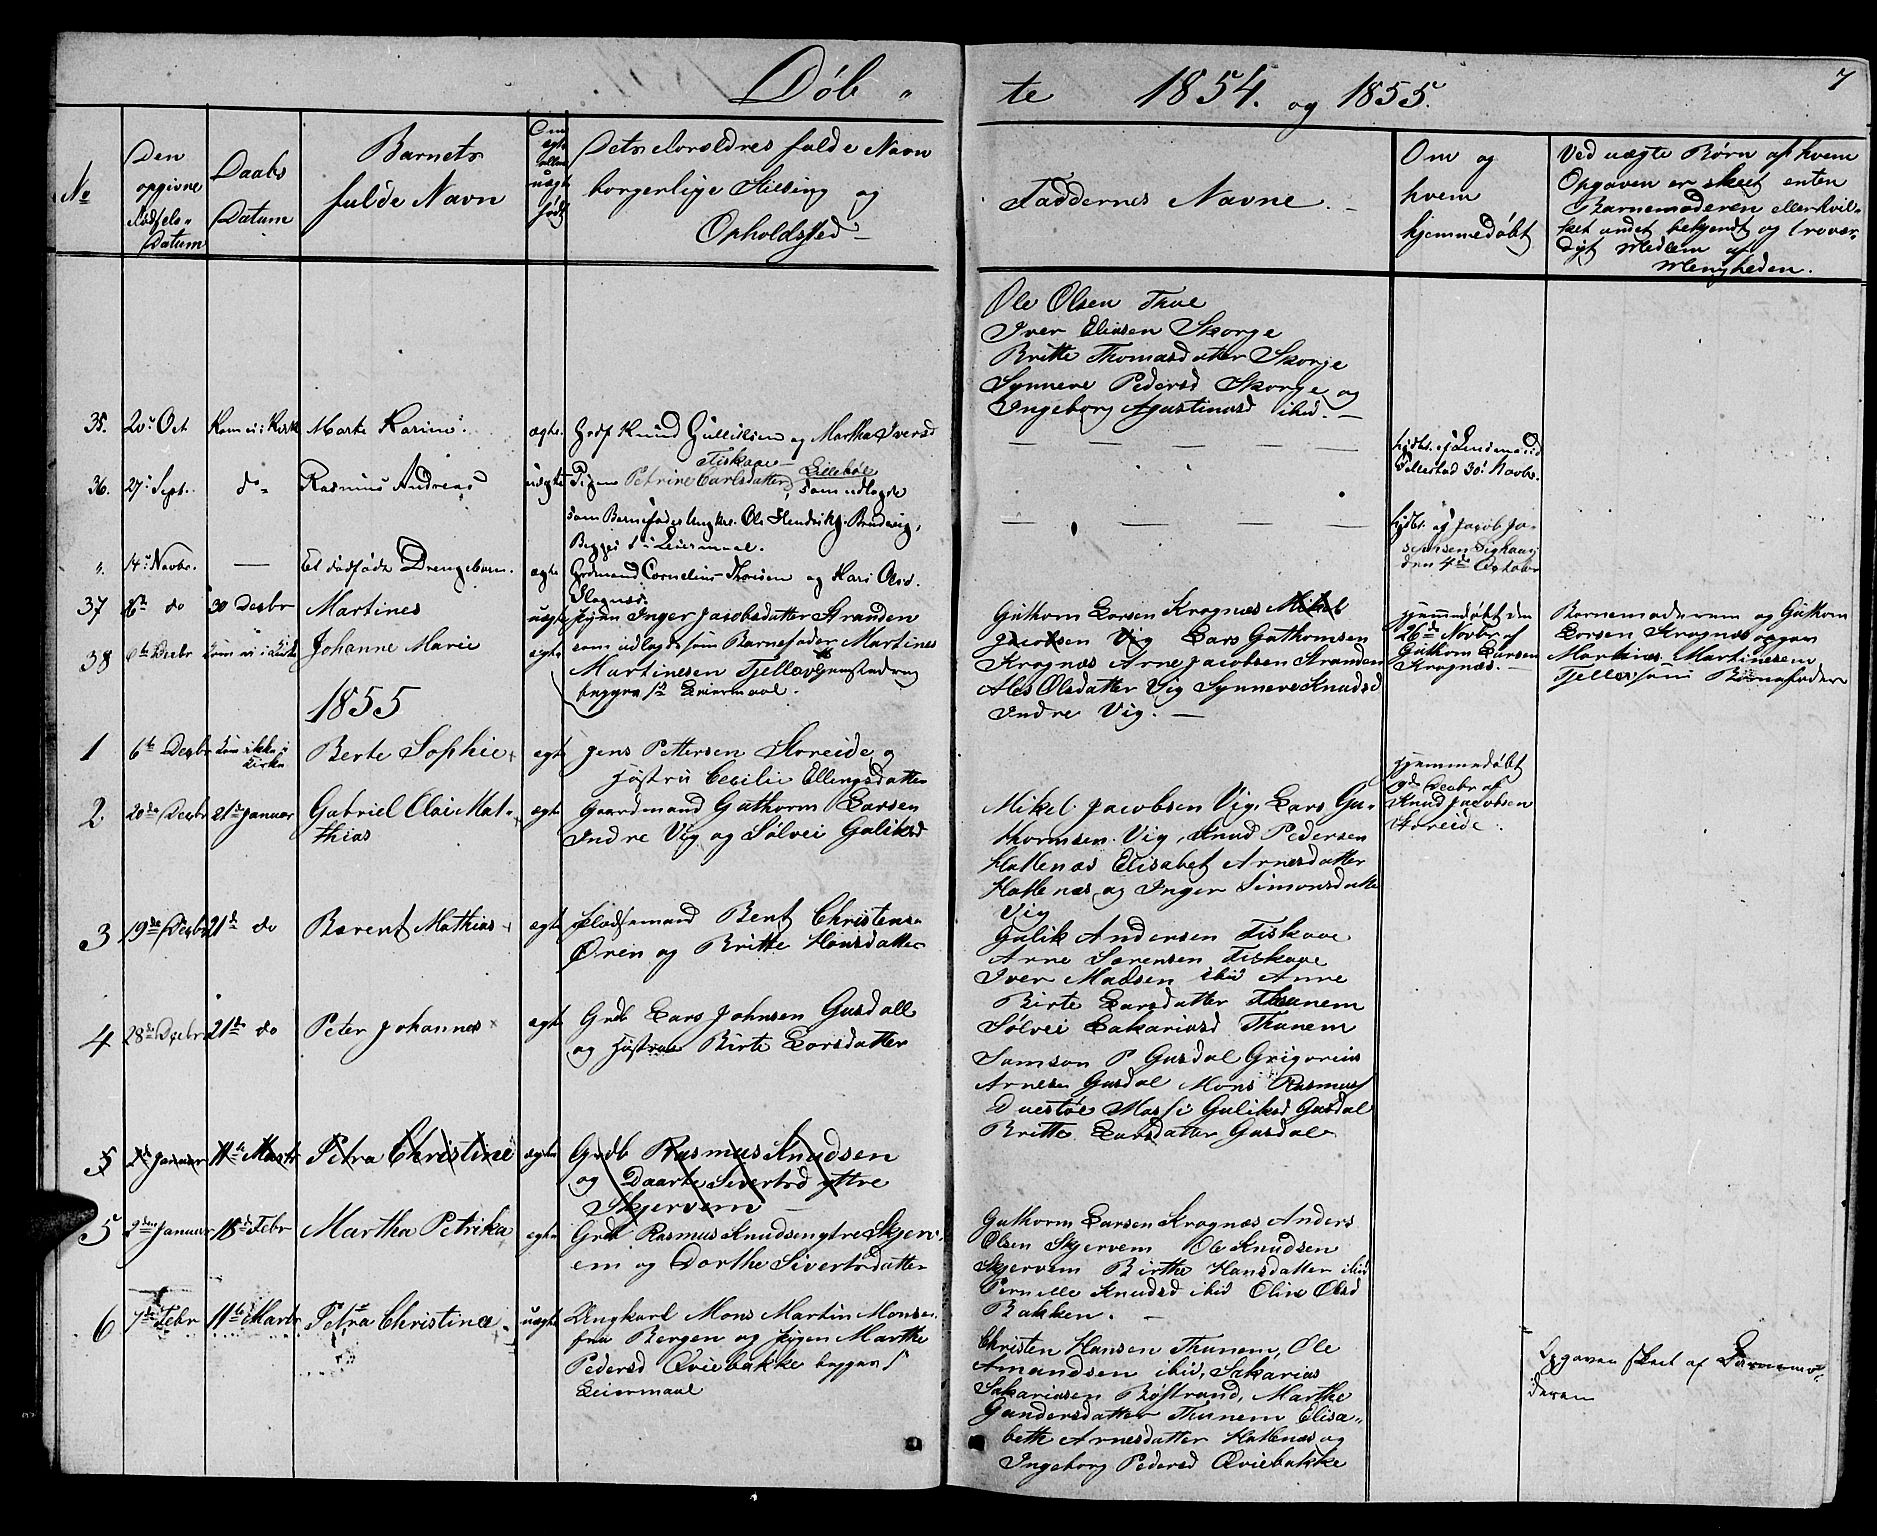 Døb te 1854. og 1855. 7
№
Den opgivne Fødsels Datum
Daabs Datum
Barnets fulde Navn
Om ægte eller uægte født
Dets Forældres fulde Navn borgerlige Stilling og Opholdsted
Faddernes Navne.
Om og hvem hjemmedøbt
Ved uægte Børn af hvem
Opgaven er skeet enten
Barnemoderen eller hvil-
ket andet bekjendt og trovær-
digt Medlem af
Menigheden.
Ole Olsen Thue
Iver Eliasen Skorge
Britte Thomasdatter Skorge
Synneve Pedersd Skorge og
Ingeborg Agustinusd ibid.
35. 20 Oct Kom ei i Kirke Marte Karine ægte. Grdf Knud Gulliksen og Martha Iversd
Fiskaae
36. 27 Sept. do Rasmus Andreas uægte Pigen Petrine Carlsdatter Lillebøe, som udlagde
som Barnefader Ungkar. Ole Hendriks.
Begges 1 Leiermaal.
30 Novbr.
Jacob Ja-
den 4de October
" 14 Novbr. Et dødfødt Drengebarn. ægte Grdmand Cornelius Thorsen og Kari Olsd.
37 do 30 Decbr Martines uægte Pigen Inger Jacobsdatter Stranden
som udlagde som Barnefader Martines
Martinesen Tjellevg
begges 1ste Leiermaal.
Guthorm Larsen Kragnæs Mikel
Jacobsen Vig Lars Guthomsen
Kragnæs Arne Jacobsen Stranden
Ales Olsdatter Vig Synneve Knudsd
Indre Vig.
hjemmedøbt den
26de Novbr af
Guthorm Larsen
Kragnæs.
Barnemoderen og Guthorm
Larsen Kragnæs
Martines Martinesen
Tjelle som Barnefader
38 6te Decbr Kom ei i Kirke Johanne Marie ægte
1855
1 6te Decbr Kom ikke i Kirke Berte Sophie ægte Jens Pettersen Storeide og
Hustru Cecilie Ellingsdatter
hjemmedøbt
9de Decbr af
Knud Jacobsen
Storeide.
2 20de Decbr 21de Januar Gabriel Olai Mat-
thias
ægte Gaardmand Guthorm Larsen
Indre Vig og Sølvei Guliksd
Mikel Jacobsen Vig, Lars Gu-
thormsen Vig, Knud Pedersen
Hatlenæs Elisabet Arnesdatter
Hatlenæs og Inger Simonsdatter
Vig
3 19de Decbr 21de do Barent Mathias ægte Pladsemand Bent Christens.
Øren og Britte Hansdatter
Gulik Andersen Fiskaae
Arne Sørensen Fiskaae
Iver Madsen ibid Anne
Birte Larsdatter Thunem
Sølvei Sakariasd Thunem
4 28de Decbr 21de do Peter Johannes ægte Grdb Lars Johnsen Gusdall
og Hustrue Birte Larsdatter
Samson P Gusdal Grigorius
Arnesen Gusdal Mons Rasmus
Duestøl Massi Guliksd Gusdal
Britte Larsdatter Gusdal
5 2de Januar 11te Marts Petra Christine ægte Grdb Rasmus Knudsen
og Daarte Sivertsd yttre
Skjervem
5 2den Januar 18de Febr Martha Petrika ægte Grdb Rasmus Knudsen ytre Skjerv-
em og Dorthe Sivertsdatter
Guthorm Larsen Kragnæs Anders
Olsen Skjervem Ole Knudsen
Skjervem Birthe Hansdatter ibid
Pernille Knudsd ibid Oline Olsd
Bakken.
6 7de Febr 11te Marts Petra Christine uægte Ungkarl Mons Martin Monsen
fra Bergen og Pigen Marthe
Pedersd Qviebakke begges 1
Leiermaal
Christen Hansen Thunem, Ole
Amundsen ibid, Sakarias
Sakariasen Røstrand, Marthe
Gundersdatter Thunem Elisa-
beth Arnesdatter Hatlenæs og
Ingeborg Pedersd Qviebakke
Opgaven skeet af Barnemo-
deren